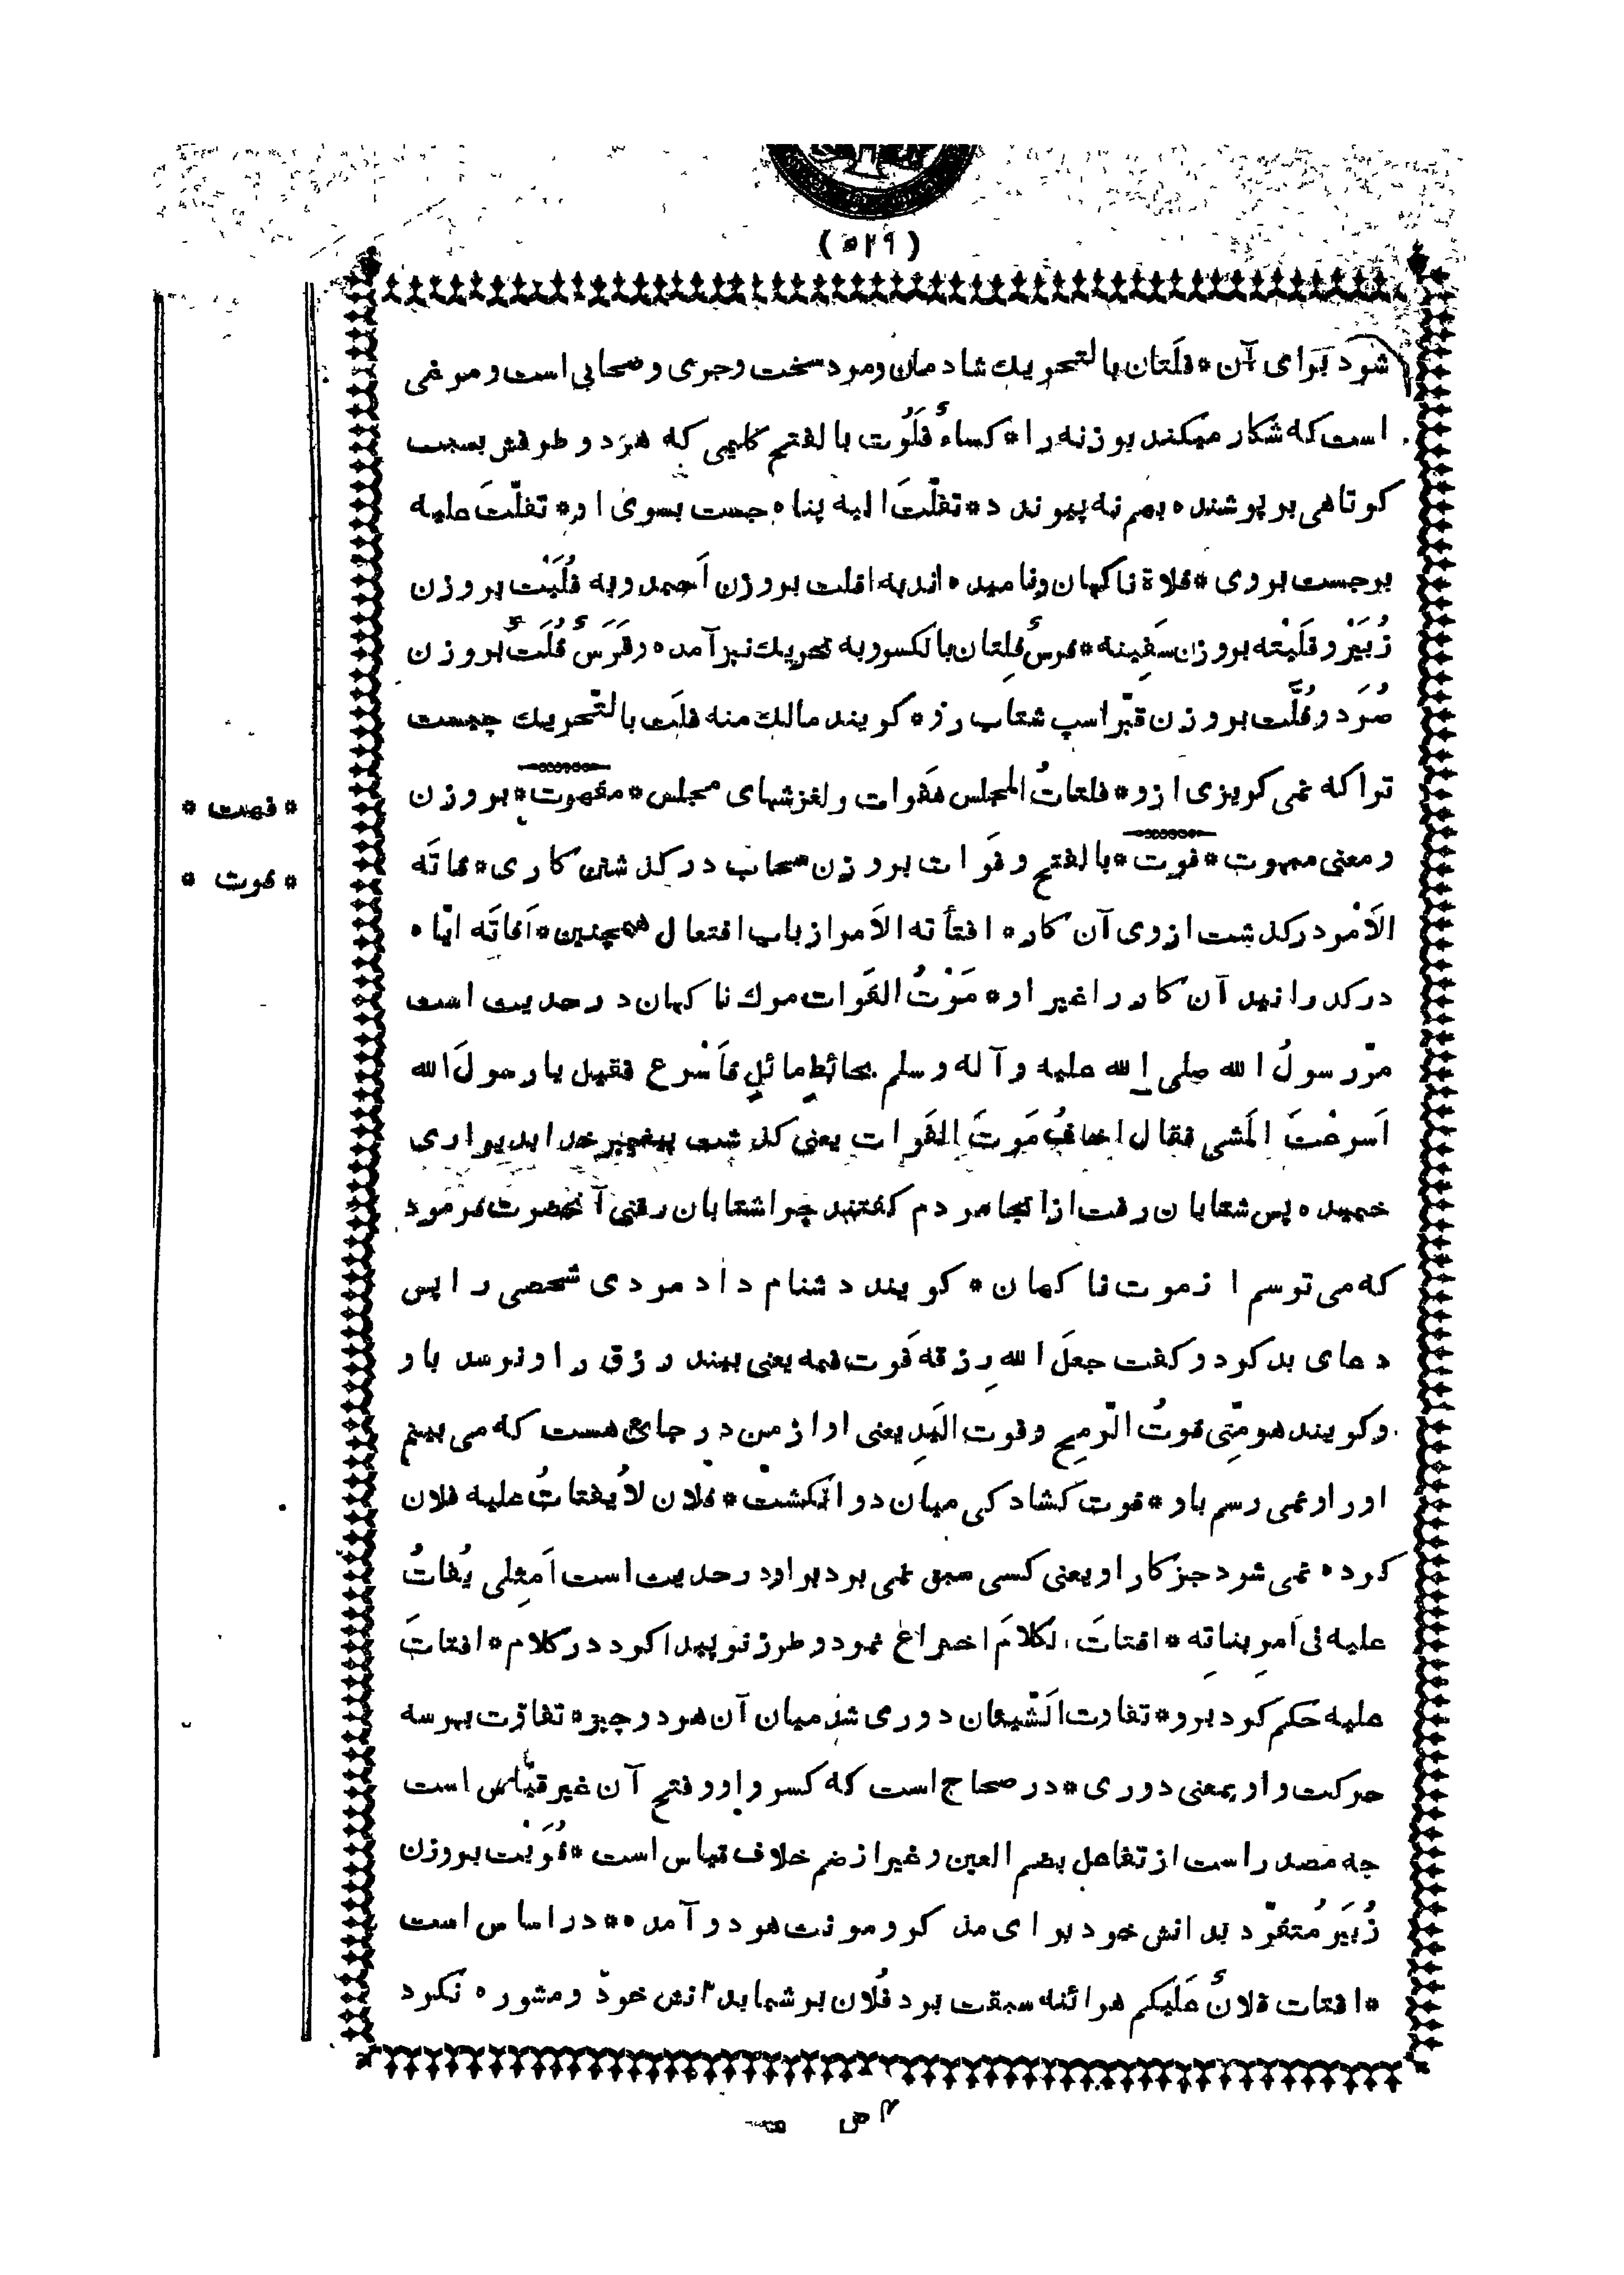 (۵۲۹)
شود برای آن * فلَتان بالتحریك شادمان ومرد سخت وجری وصحابی است ومرغی
است كه شكار میكند بوزنه را * كساءٌ فَلُوت بالفتح كلیمی كه هر دو طرفش بسبب
كوتاهی بر پوشنده بهم نه پیوندد * تفلّتَ الیه پناه جست بسوی او * تفلّتَ علیه
برجست بروی * فلاة ناكهان ونامیده اند به افلت بروزن اَحمد وبه فُلَیْت بروزن
زُبَیْر وفَلیْته بروزن سَفِینه * فرسٌ فِلتان بالكسر وبه تحریك نیز آمده وفَرَسٌ فُلَتٌ بروزن
صُرَد وفُلَّت بروزن قبّر اسپ شتاب رو * كویند مالك منه فلَت بالتّحریك چیست
ترا كه نمی كریزی ازو * فلتاتُ المجلس هَفَوات ولغزشهای مجلس * مفهوت * بروزن
* فهت *
ومعنی مبهوت * فوت * بالفتح وفَوات بروزن سحاب در كذشتن كاری * فاتَه
* فوت *
الاَمْر در كذشت ازوی آن كار * افتأته الاَمر از باب افتعال همچنین * اَفاتَه ایّاه
در كذرانید آن كار را غیر او * مَوْتُ الفَوات مرك ناكهان در حدیث است
مرّ رسولُ الله صلی الله علیه وآله وسلم بحائطٍ مائلٍ فاَسْرع فقیل یا رسولَ الله
اَسرعْتَ المَشی فقال اخافُ مَوتَ الفَوات یعنی كذشت پیغمبر خدا بدیواری
خمیده پس شتابان رفت ازانجا مردم كفتند چرا شتابان رفتی آنحضرت فرمود
كه می ترسم از موت ناكهان * كویند دشنام داد مردی شخصی را پس
دعای بد كرد وكفت جعلَ الله رِزقه فَوت فمه یعنی بیند رزق را ونرسد باو
وكویند هو منّی فوتُ الرّمح وفوت الیَدِ یعنی او از من در جای هست كه می بینم
اورا ونمی رسم باو * فوت كشادكی میان دو انكشت * فلان لا یُفتاتُ علیه فلان
كرده نمی شود جز كار او یعنی كسی سبق نمی برد براو در حدیث است اَمثلی یُفاتُ
علیه فی اَمرِ بناتِه * افتاتَ الكلامَ اختراع نمود وطرز نو پیدا كرد در كلام * افتاتَ
علیه حَكم كرد برو * تفاوت الشّیئان دوری شد میان آن هر دو چیز * تفاوت بهر سه
حركت واو بمعنی دوری * در صحاح است كه كسر واو وفتح آن غیر قیاس است
چه مصدر است از تفاعل بضم العین وغیر از ضم خلاف قیاس است * فُوَیْت بروزن
زُبَیر مُتفرّد بدانش خود برای مذكر ومونث هر دو آمده * در اساس است
* افتات فلانٌ عَلیكم هر آئنه سبقت برد فُلان بر شما بدانش خود ومشوره نكرد